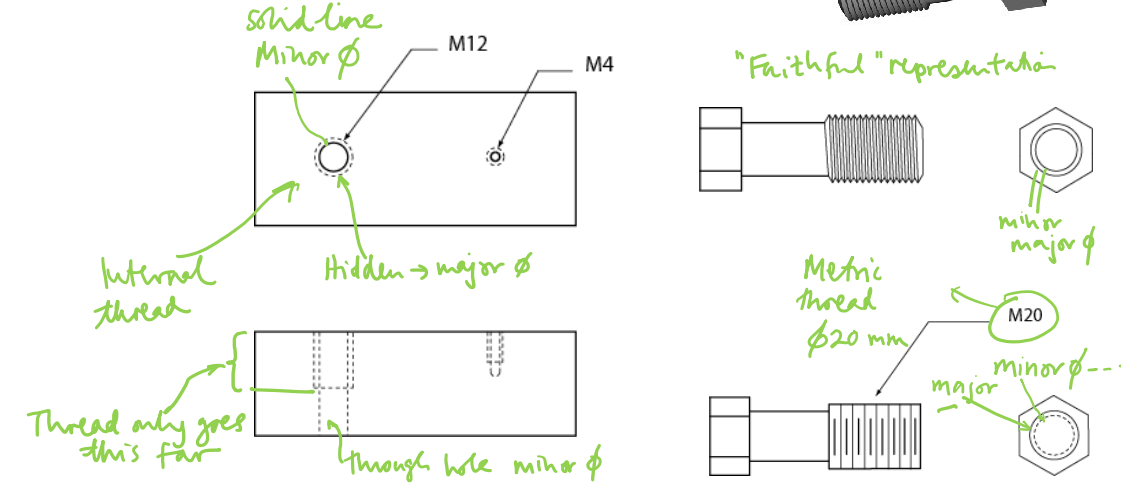 solid line
Minor ϕ
M12
M4
Internal
thread
Hidden → major ϕ
Thread only goes
this far
through hole minor ϕ
"Faithful" representation
minor
major ϕ
Metric
thread
ϕ20 mm
M20
minor ϕ ---
major